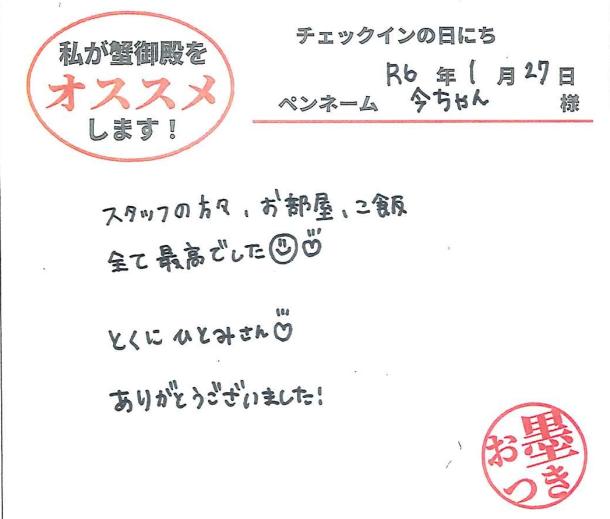 私が蟹御殿を
オススメ
します！
チェックインの日にち
R6年1月27日
ペンネーム 今ちゃん 様
スタッフの方々、お部屋、ご飯
全て最高でした
とくに ひとみさん
ありがとうございました!
お墨
つき